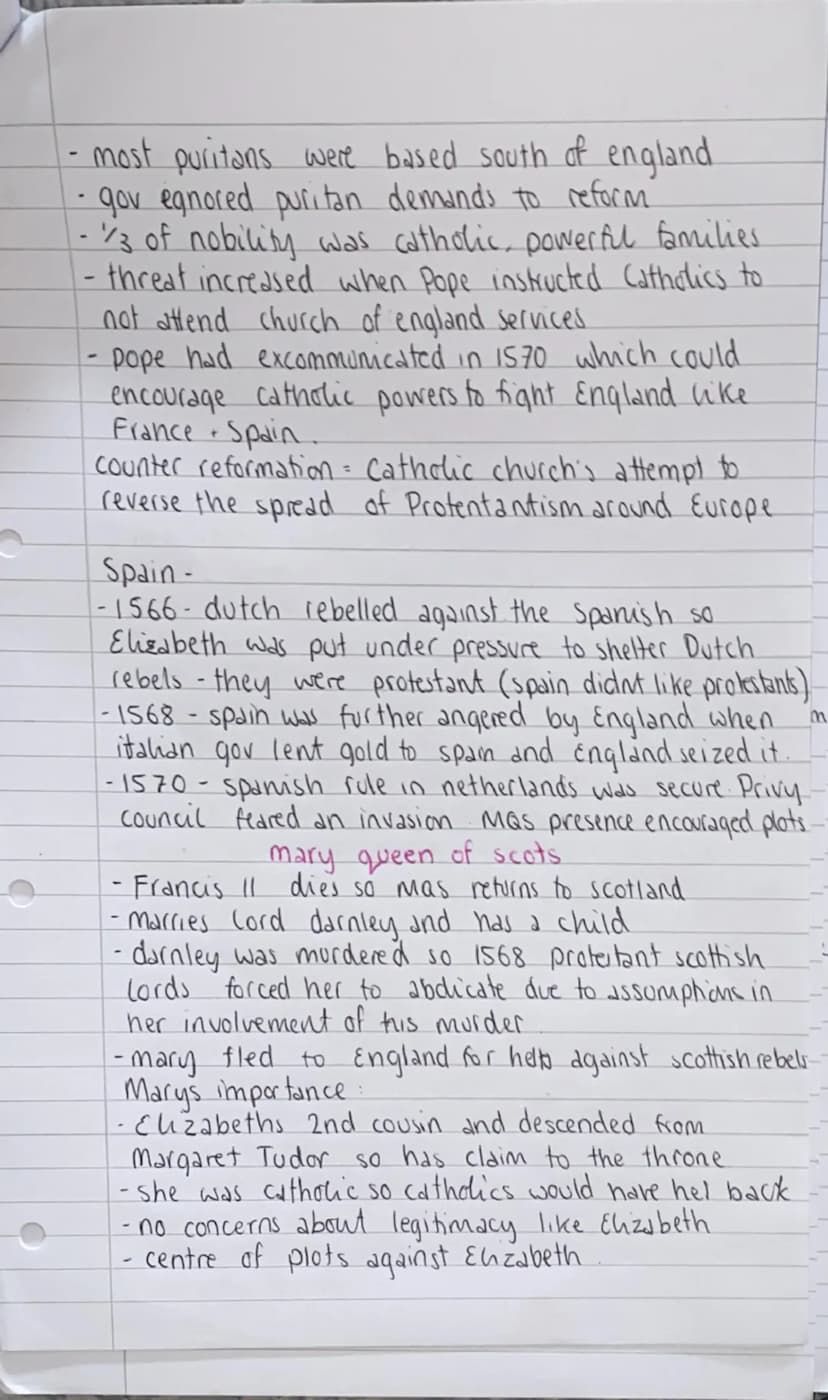 - most puritans were based south of england
- gov egnored puritan demands to reform
- 1/3 of nobility was catholic, powerful families
- threat increased when Pope instructed Catholics to
not attend church of england services
- pope had excommunicated in 1570 which could
encourage catholic powers to fight England like
France + Spain.
counter reformation = Catholic church's attempt to
reverse the spread of Protentantism around Europe
Spain -
- 1566 - dutch rebelled against the Spanish so
Elizabeth was put under pressure to shelter Dutch
rebels - they were protestant (spain didnt like protestants)
- 1568 - spain was further angered by England when
italian gov lent gold to spain and England seized it.
- 1570 - spanish rule in netherlands was secure. Privy
council feared an invasion. MQs presence encouraged plots
mary queen of scots
- Francis II dies so MQS returns to scotland
- marries lord darnley and has a child
- darnley was murdered so 1568 protestant scottish
lords forced her to abdicate due to assumptions in
her involvement of his murder
- mary fled to England for help against scottish rebels
Marys importance:
- Elizabeths 2nd cousin and descended from
Margaret Tudor so has claim to the throne
- she was catholic so catholics would have hel back
- no concerns about legitimacy like Elizabeth
- centre of plots against Elizabeth.